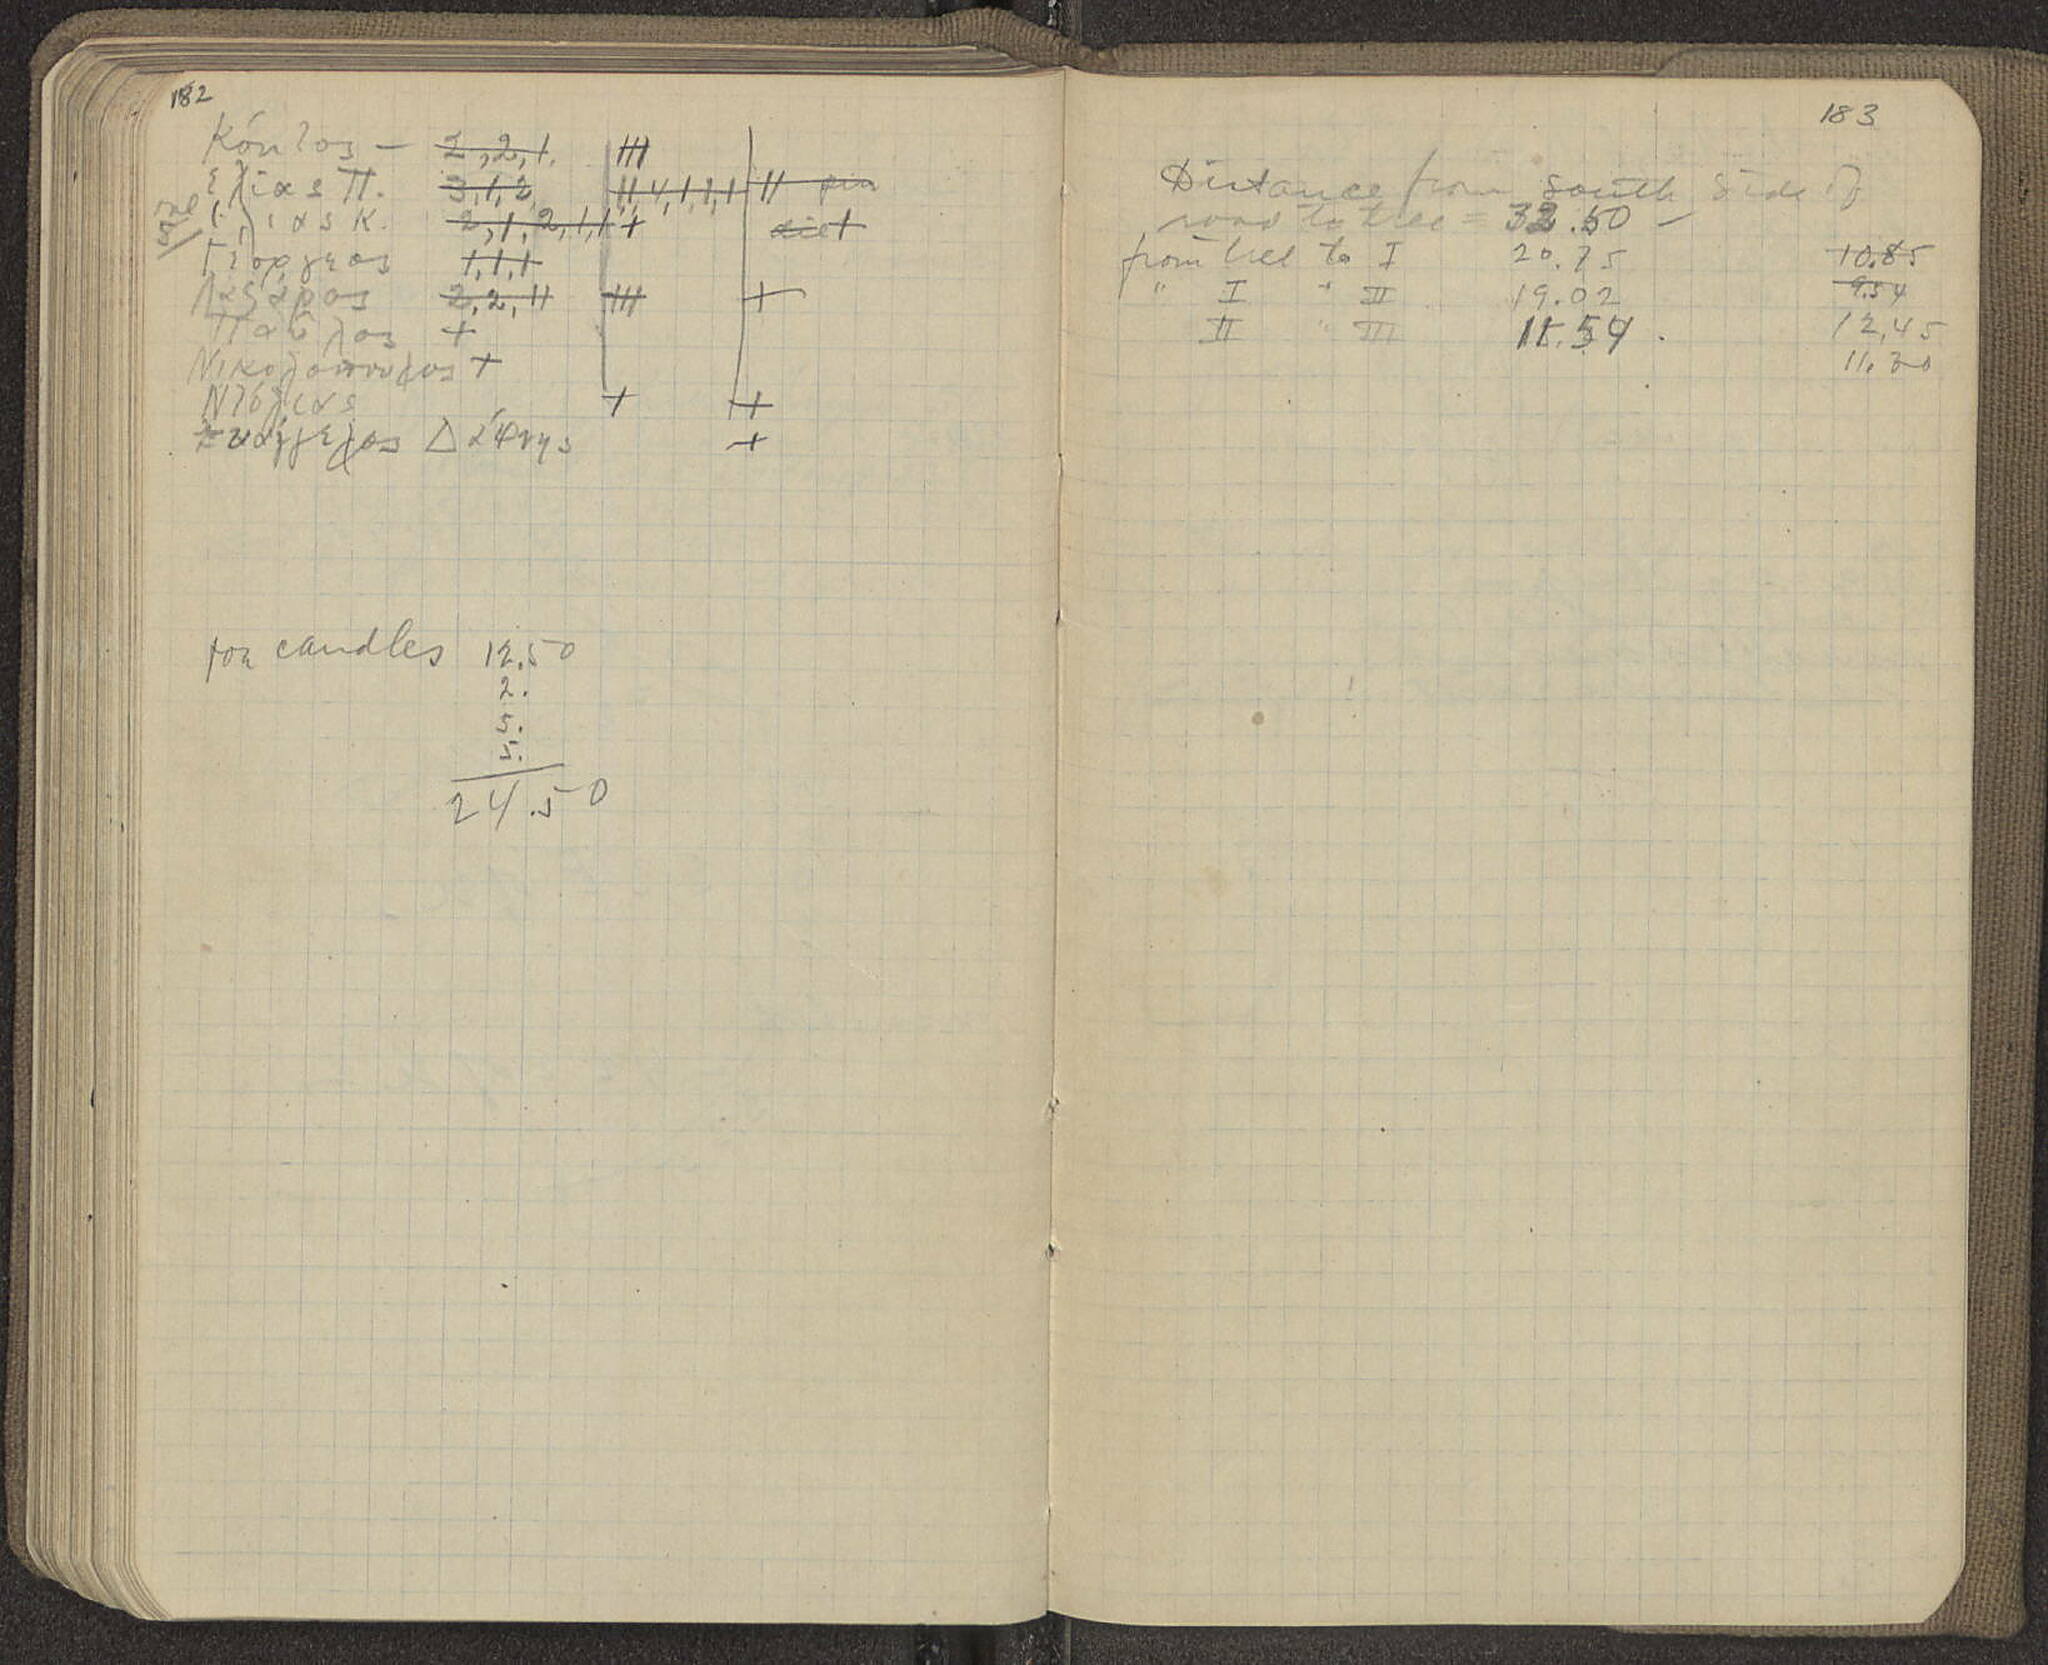 182
Κόντος — 2, 2, 1. III
Ἐλίας Π. 3, 1, 2, II, 4, 1, 1, 1 II
Ἐλίας Κ. 2, 1, 2, 1, 1 + +
Γεόργεος 1, 1, 1
Λαζάρος 2, 2, 11 III +
Παῦλος +
Νικολόπουλος +
+ +
Ευάγγελος Δάφνης +
for candles 12.50
2.
5.
5.
24.50
183
Distance from south side of
road to tree = 32.50 —
from tree to I 20.75 10.85
" I " II 19.02 9.54
II " III 11.54. 12,45
11.30